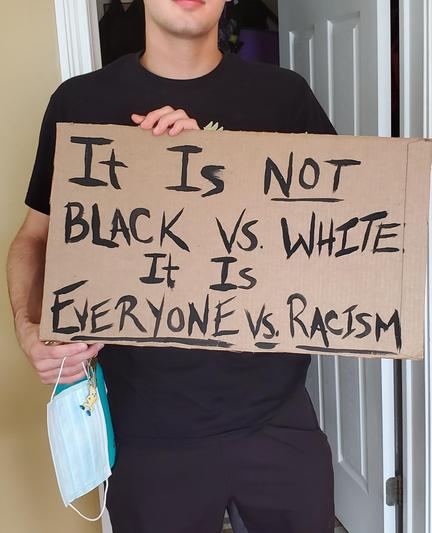 It Is NOT
BLACK VS. WHITE.
It Is
EVERYONE VS. RACISM